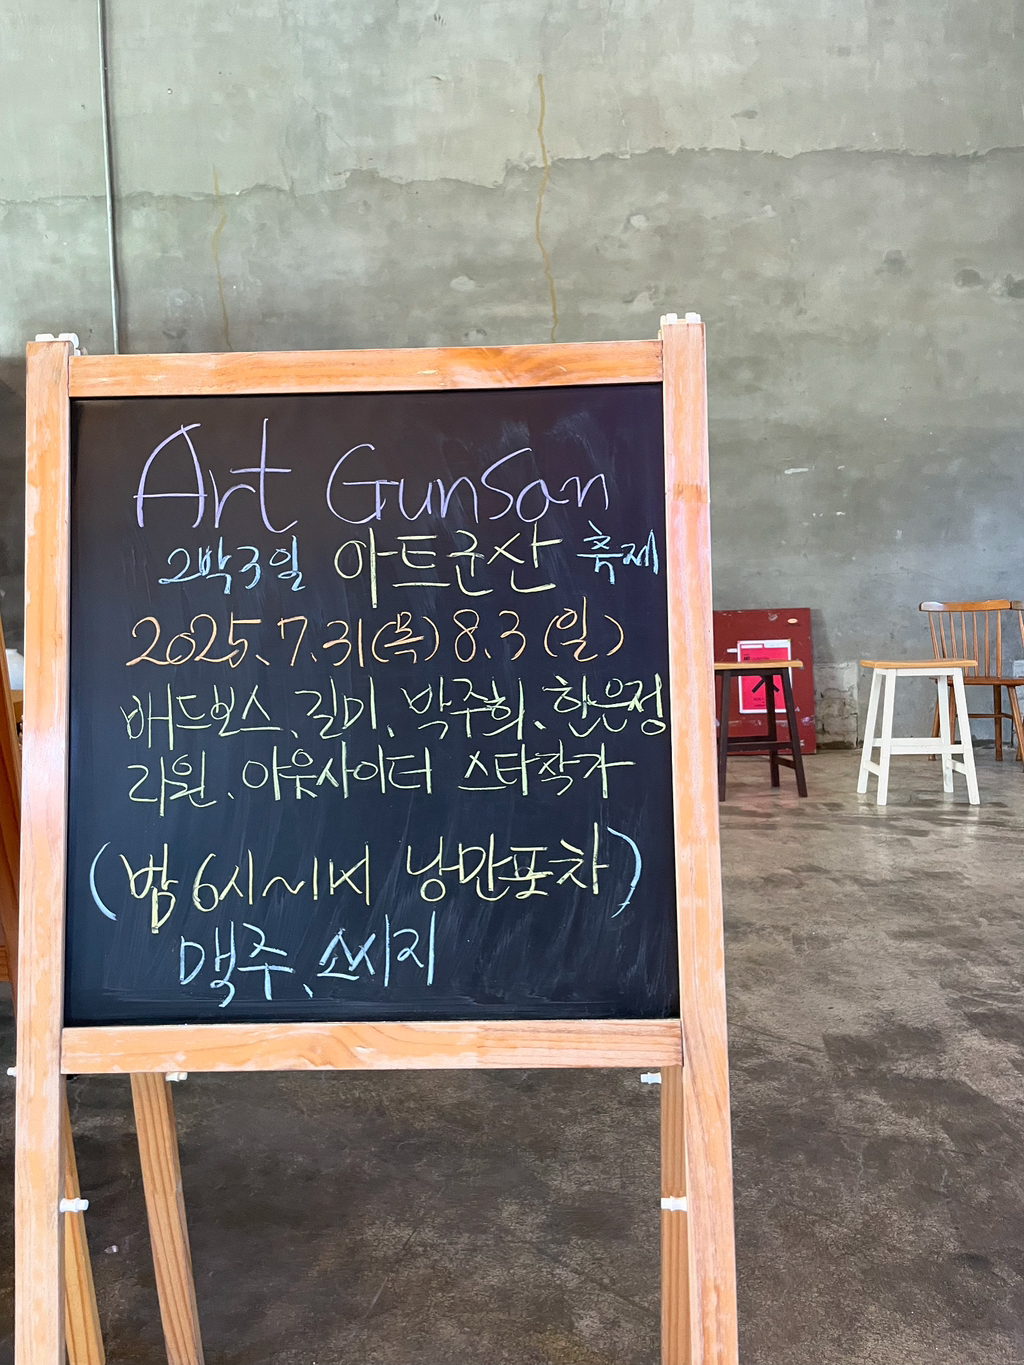 Art Gunsan
2박3일 아트군산 축제
2025.7.31(목) 8.3 (일)
배드보스、길미、박주희、한은정
라원、아웃사이더 스타작가
(밤 6시~11시 낭만포차)
맥주、소시지